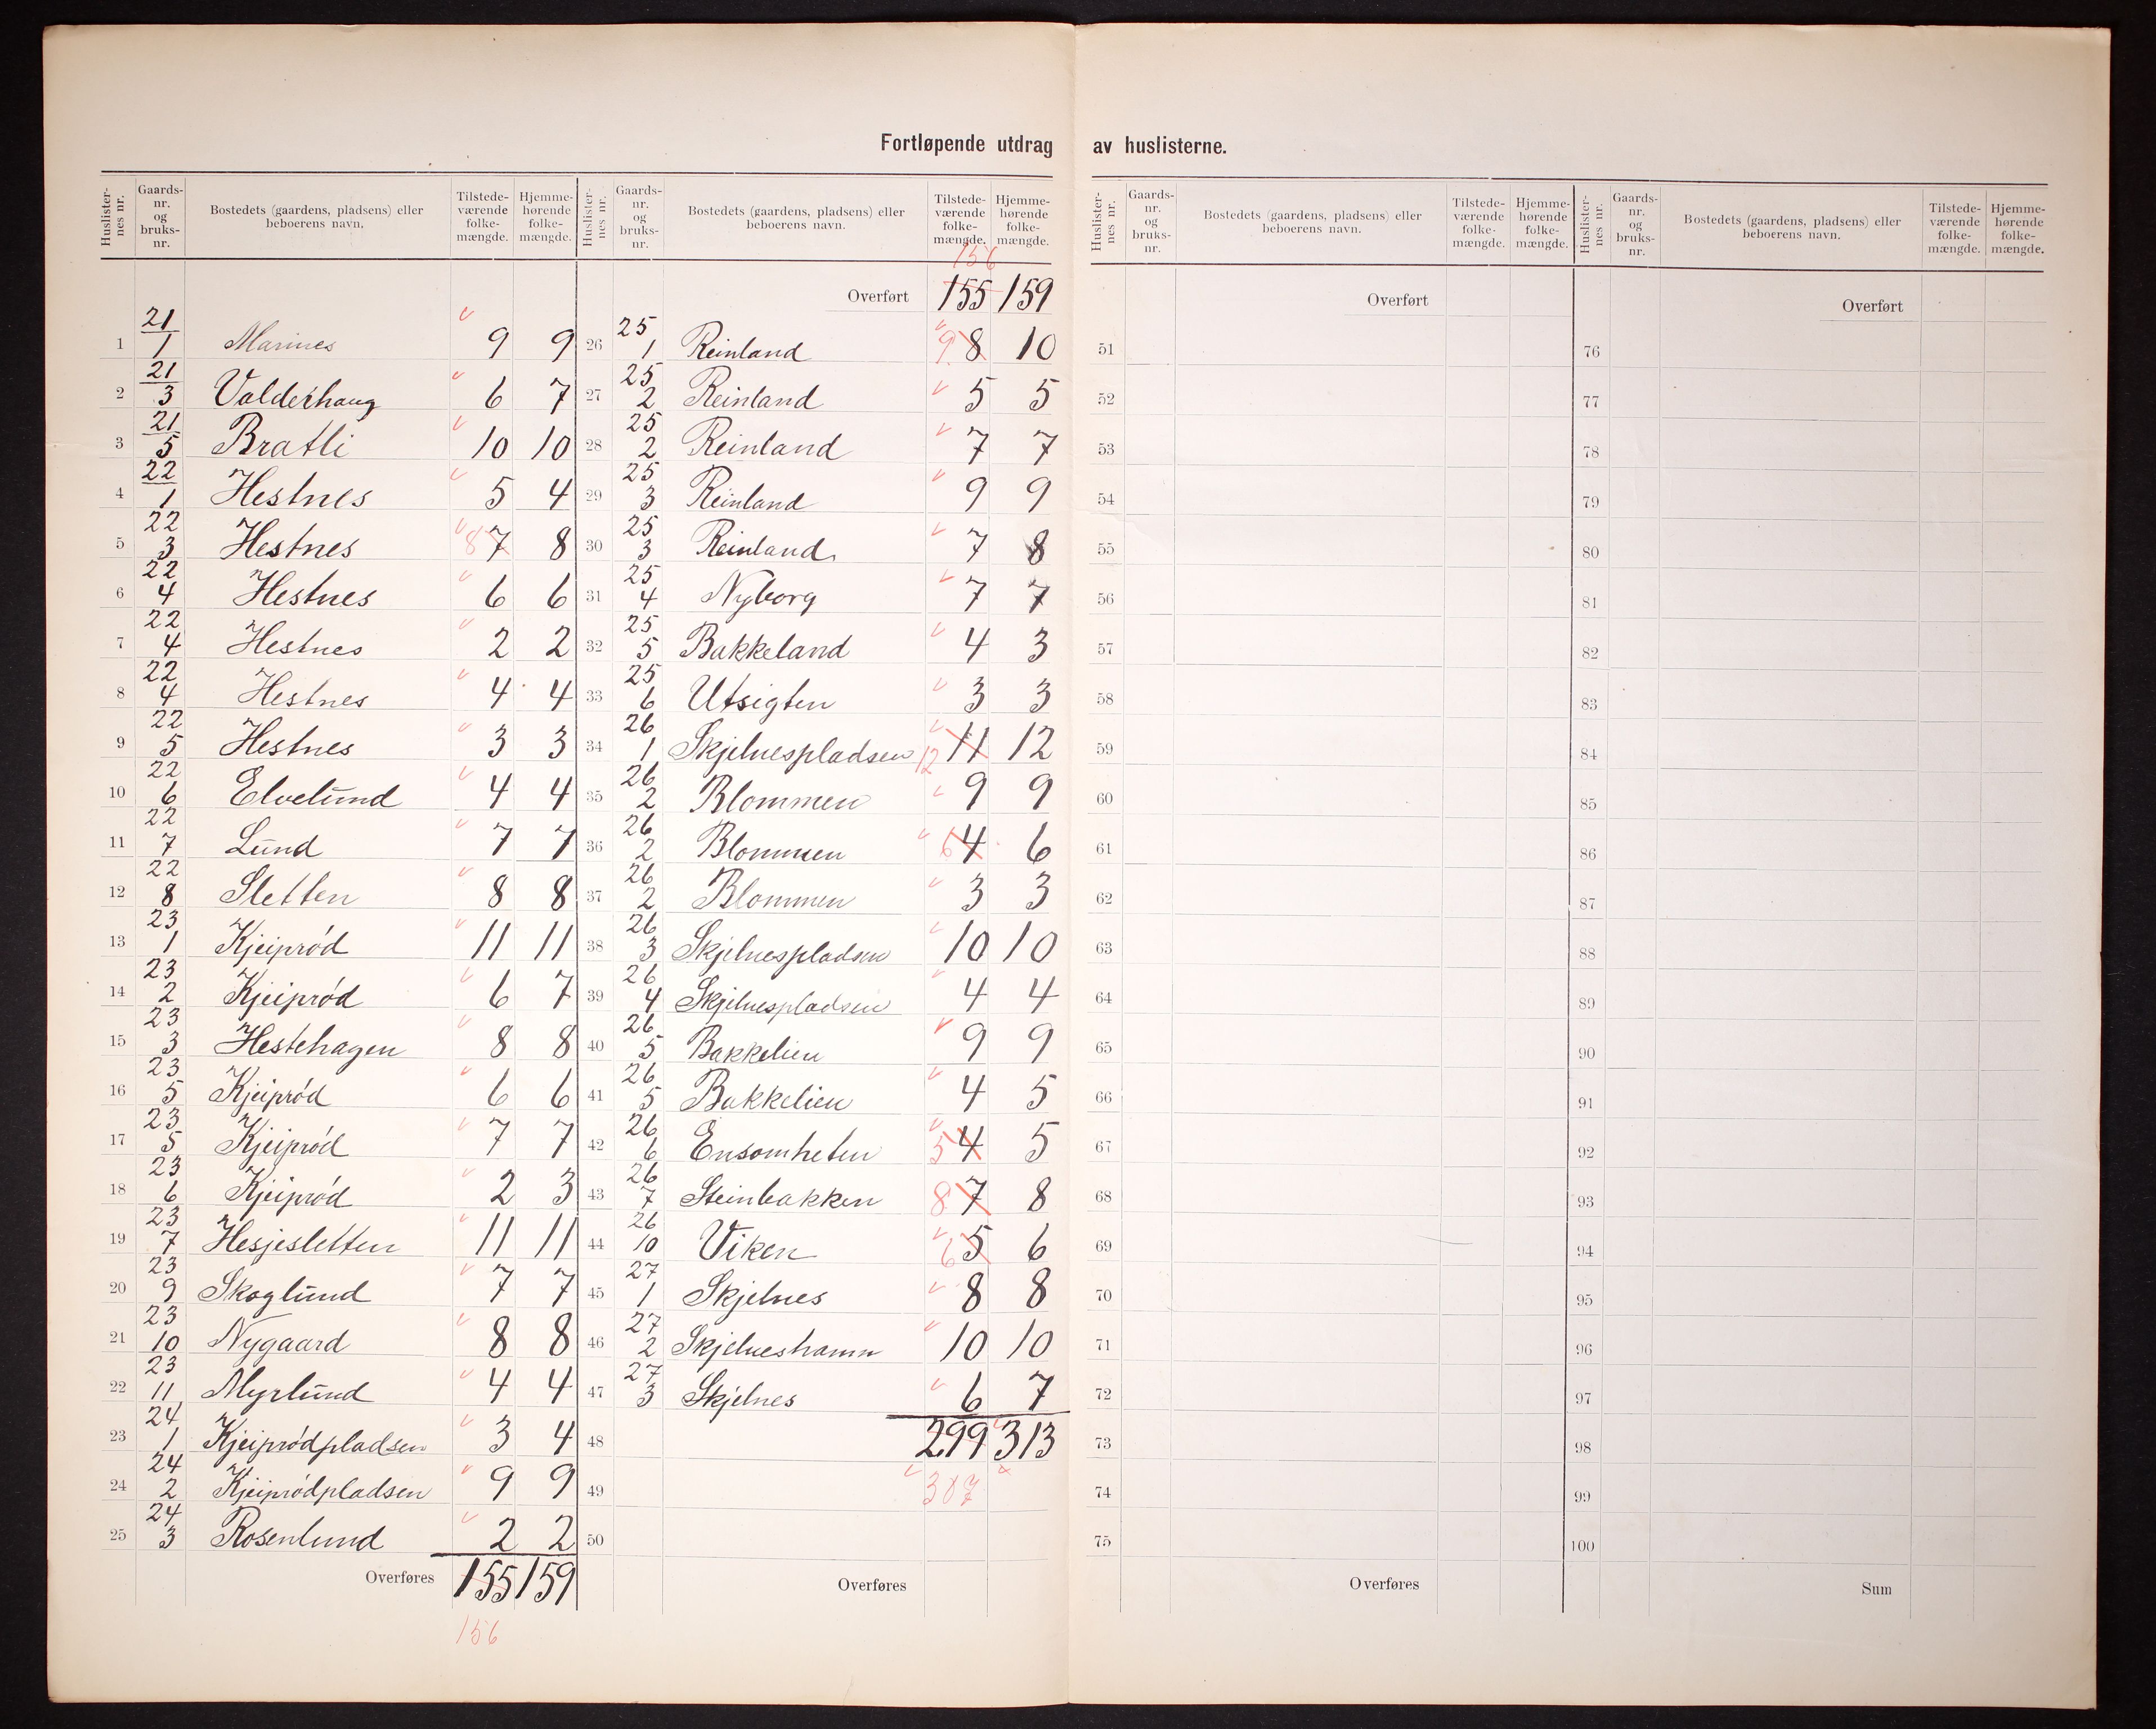 Fortløpende utdrag av huslisterne.
Huslisternes nr. Gaards-nr. og bruks-nr. Bostedets (gaardens, pladsens) eller beboerens navn. Tilstede-værende folke-mængde. Hjemme-hørende folke-mængde.
1 21/1 Marines 9 9
2 21/3 Valderhaug 6 7
3 21/5 Bratli 10 10
4 22/1 Hestnes 5 4
5 22/3 Hestnes 8 7 8
6 22/4 Hestnes 6 6
7 22/4 Hestnes 2 2
8 22/4 Hestnes 4 4
9 22/5 Hestnes 3 3
10 22/6 Elvelund 4 4
11 22/7 Lund 7 7
12 22/8 Sletten 8 8
13 23/1 Kjeiprød 11 11
14 23/2 Kjeiprød 6 7
15 23/3 Hestehagen 8 8
16 23/5 Kjeiprød 6 6
17 23/5 Kjeiprød 7 7
18 23/6 Kjeiprød 2 3
19 23/7 Hesjesletten 11 11
20 23/9 Skoglund 7 7
21 23/10 Nygaard 8 8
22 23/11 Myrlund 4 4
23 24/1 Kjeiprødpladsen 3 4
24 24/2 Kjeiprødpladsen 9 9
25 24/3 Rosenlund 2 2
Overføres 155 159
156
Huslisternes nr. Gaards-nr. og bruks-nr. Bostedets (gaardens, pladsens) eller beboerens navn. Tilstede-værende folke-mængde. Hjemme-hørende folke-mængde.
156
Overført 155 159
26 25/1 Reinland 9 8 10
27 25/2 Reinland 5 5
28 25/2 Reinland 7 7
29 25/3 Reinland 9 9
30 25/3 Reinland 7 8
31 25/4 Nyborg 7 7
32 25/5 Bakkeland 4 3
33 25/6 Utsigten 3 3
34 26/1 Skjelnespladsen 12 11 12
35 26/2 Blommen 9 9
36 26/2 Blommen 6 4 6
37 26/2 Blommen 3 3
38 26/3 Skjelnespladsen 10 10
39 26/4 Skjelnespladsen 4 4
40 26/5 Bakkelien 9 9
41 26/5 Bakkelien 4 5
42 26/6 Ensomheten 5 4 5
43 26/7 Steinbakken 8 7 8
44 26/10 Viken 6 5 6
45 27/1 Skjelnes 8 8
46 27/2 Skjelneshamn 10 10
47 27/3 Skjelnes 6 7
48 299 313
49 307
50
Overføres
Huslisternes nr. Gaards-nr. og bruks-nr. Bostedets (gaardens, pladsens) eller beboerens navn. Tilstede-værende folke-mængde. Hjemme-hørende folke-mængde.
Overført
51
52
53
54
55
56
57
58
59
60
61
62
63
64
65
66
67
68
69
70
71
72
73
74
75
Overføres
Huslisternes nr. Gaards-nr. og bruks-nr. Bostedets (gaardens, pladsens) eller beboerens navn. Tilstede-værende folke-mængde. Hjemme-hørende folke-mængde.
Overført
76
77
78
79
80
81
82
83
84
85
86
87
88
89
90
91
92
93
94
95
96
97
98
99
100
Sum